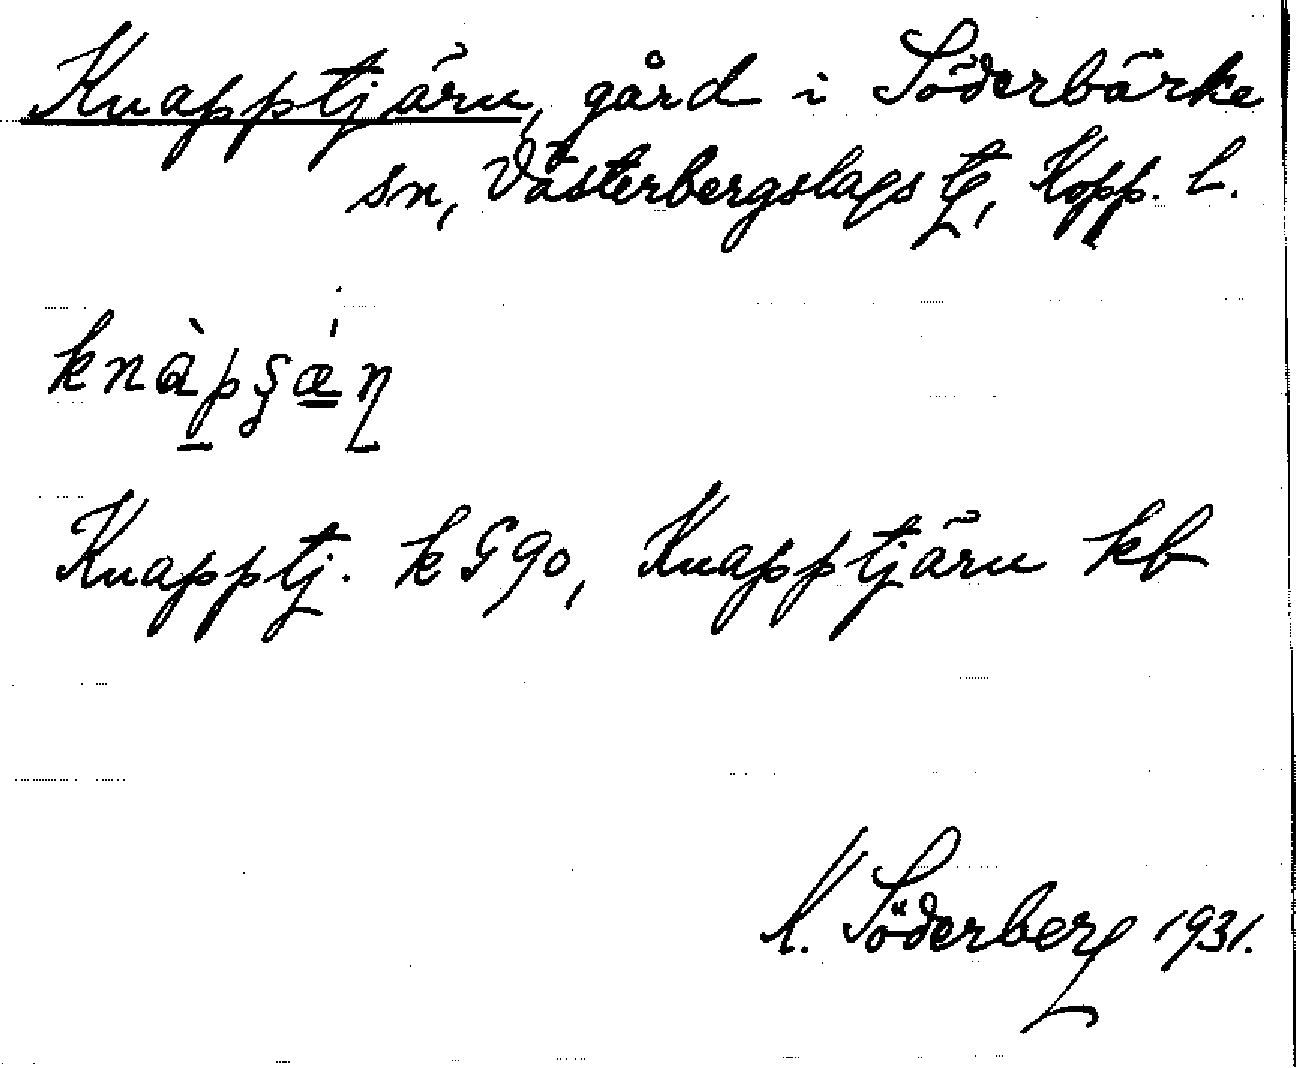 Knapptjärn, gård i Söderbärke
sn, Västerbergslags tg, Kopp. l.
knàpşǽn
Knapptj. k G90, Knapptjärn kb
K. Söderberg 1931.